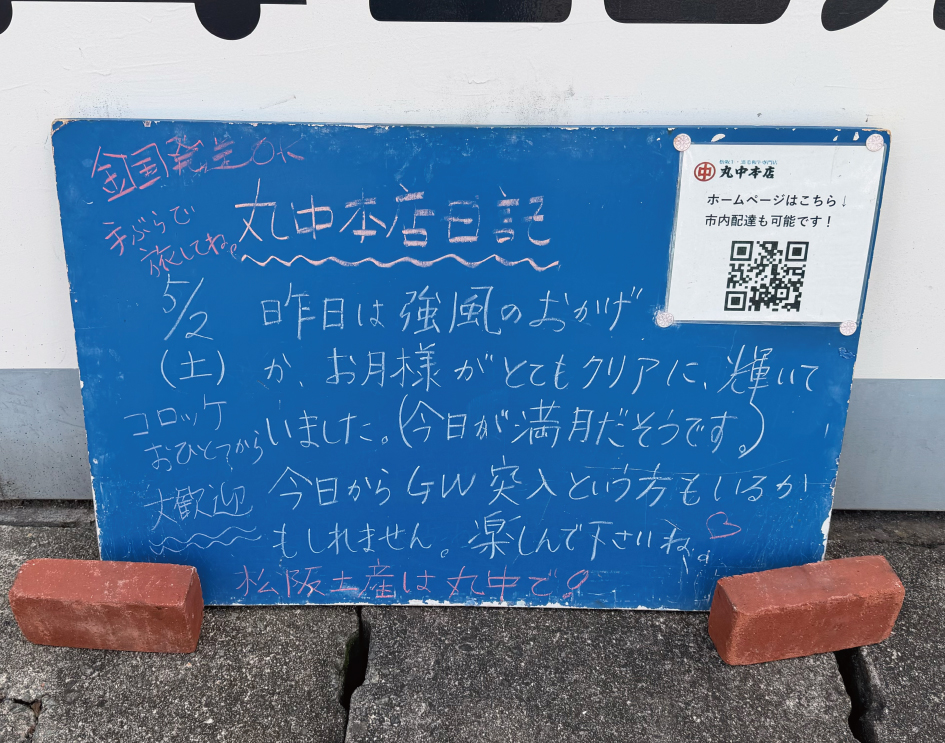 全国発送OK
手ぶらで
旅してね。
丸中本店日記
松阪牛・黒毛和牛専門店
中 丸中本店
ホームページはこちら↓
市内配達も可能です！
5/2
(土)
昨日は強風のおかげ
か、お月様がとてもクリアに、輝いて
いました。(今日が満月だそうです。)
今日からGW突入という方もいるか
もしれません。楽しんで下さいね。
コロッケ
おひとつから
大歓迎
松阪土産は丸中で!